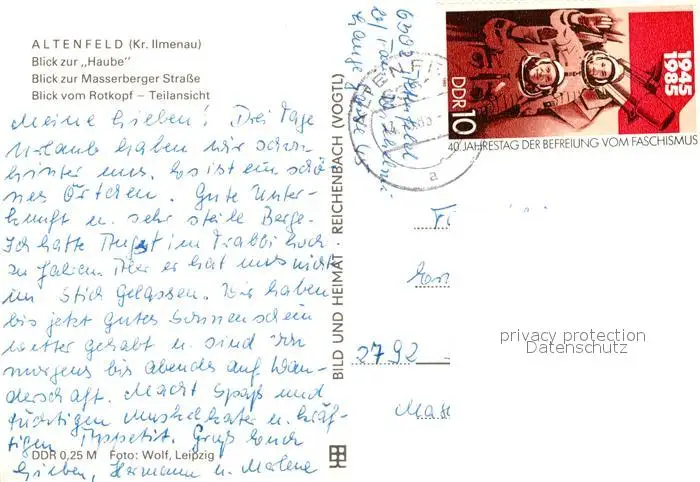 ALTENFELD (Kr. Ilmenau)
Blick zur „Haube"
Blick zur Masserberger Straße
Blick vom Rotkopf – Teilansicht
Meine Lieben! Drei Tage
Urlaub haben wir schon
hinter uns. Es ist ein schö-
nes Örtchen. Gute Unter-
kunft u. sehr steile Berge.
Ich hatte Angst im Trabbi hoch
zu fahren. Aber er hat uns nicht
im Stich gelassen. Wir haben
bis jetzt gutes Sonnenschein
wetter gehabt u. sind von
morgens bis abends auf Wan-
derschaft. Macht Spaß und
tüchtigen Muskelkater u. kräf-
tigen Appetit. Gruß Euch
Lieben, Hermann u. Marlene
DDR 0,25 M Foto: Wolf, Leipzig
BILD UND HEIMAT · REICHENBACH (VOGTL)
DDR 10
1945
1985
40. JAHRESTAG DER BEFREIUNG VOM FASCHISMUS
2792
privacy protection
Datenschutz